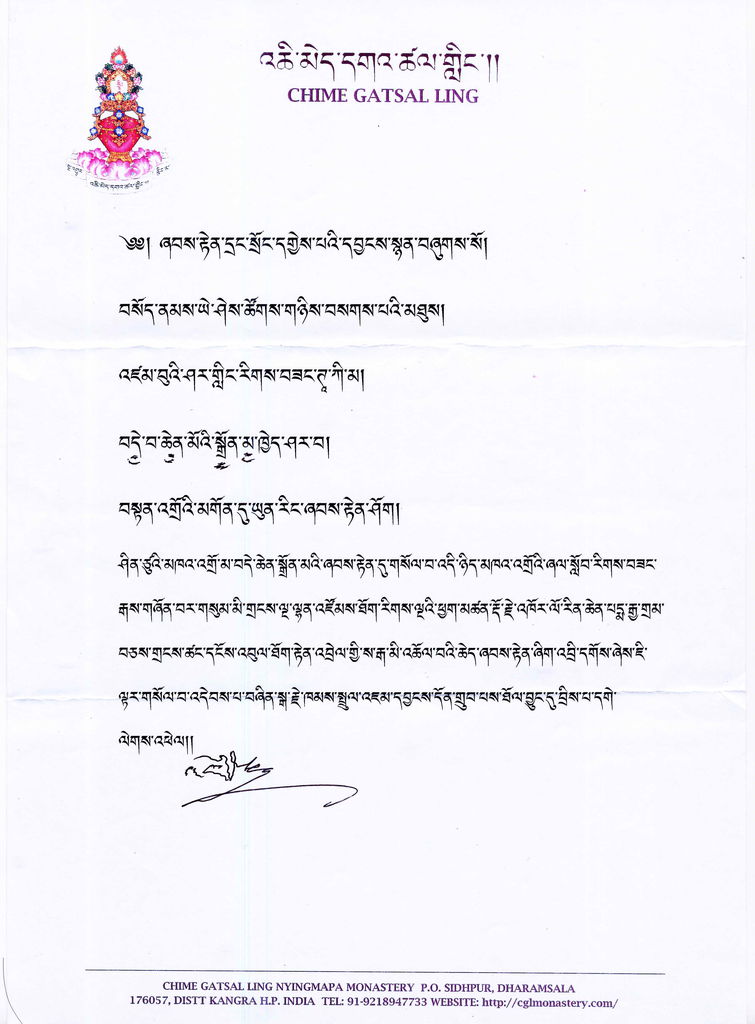 འཆི་མེད་དགའ་ཚལ་གླིང་།།
CHIME GATSAL LING
འཆི་མེད་དགའ་ཚལ་གླིང་
༄༅། ཞབས་རྟེན་དྲང་སྲོང་དགྱེས་པའི་དབྱངས་སྙན་བཞུགས་སོ།
བསོད་ནམས་ཡེ་ཤེས་ཚོགས་གཉིས་བསགས་པའི་མཐུས།
འཛམ་བུའི་ཤར་གླིང་རིགས་བཟང་ཌཱ་ཀི་མ།
བདེ་བ་ཆེན་མོའི་སྒྲོན་མ་ཁྱེད་ཤར་བ།
བསྟན་འགྲོའི་མགོན་དུ་ཡུན་རིང་ཞབས་རྟེན་ཤོག།
ཤིན་ཙུའི་མཁའ་འགྲོ་མ་བདེ་ཆེན་སྒྲོན་མའི་ཞབས་རྟེན་དུ་གསོལ་བ་འདི་ཉིད་མཁའ་འགྲོའི་ཞལ་སློབ་རིགས་བཟང་
རྒས་གཞོན་བར་གསུམ་མི་གྲངས་ལྔ་ལྡན་འཛོམས་ཐོག་རིགས་ལྔའི་ཕྱག་མཚན་རྡོ་རྗེ་འཁོར་ལོ་རིན་ཆེན་པདྨ་རྒྱ་གྲམ་
བཅས་གྲངས་ཚང་དངོས་འབུལ་ཐོག་རྟེན་འབྲེལ་གྱི་ས་རྒ་མི་འཆོལ་བའི་ཆེད་ཞབས་རྟེན་ཞིག་འབྲི་དགོས་ཞེས་ཇི་
ལྟར་གསོལ་བ་འདེབས་པ་བཞིན་སྒ་རྗེ་ཁམས་སྤྲུལ་འཇམ་དབྱངས་དོན་གྲུབ་པས་ཐོལ་བྱུང་དུ་བྲིས་པ་དགེ་
ལེགས་འཕེལ།།
CHIME GATSAL LING NYINGMAPA MONASTERY P.O. SIDHPUR, DHARAMSALA
176057, DISTT KANGRA H.P. INDIA TEL: 91-9218947733 WEBSITE: http://cglmonastery.com/